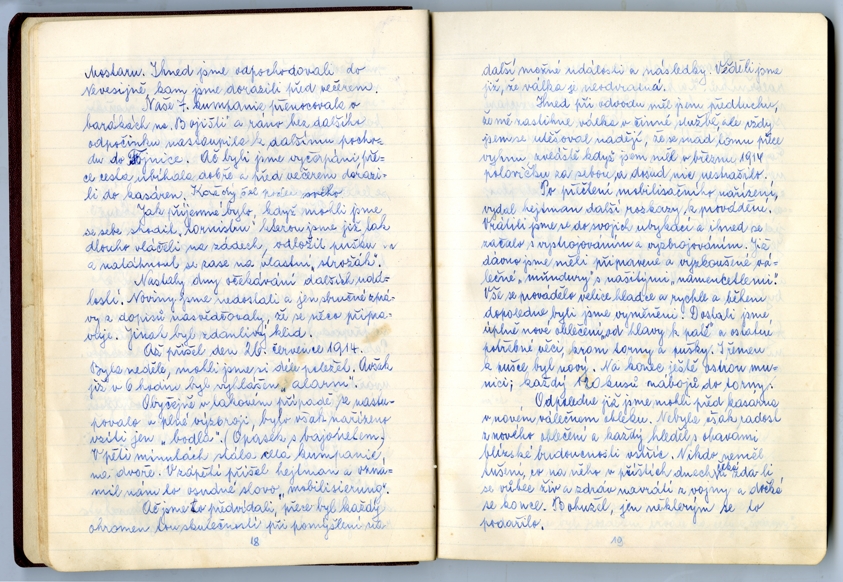 Mostaru. Ihned jsme odpochodovali do
Nevesijně kam jsme dorazili před večerem.
Naše 7. kumpanie přenocovala v
barákách na "Bojišti" a ráno bez dalšího
odpočinku nastoupila k dalšímu pocho-
du do Fojnice. Ač byli jsme vyčerpáni, pře-
ce cesta ubíhala dobře a před večerem dorazi-
li do kasáren. Každý
Jak příjemné bylo, když mohli jsme
se sebe shodit "tornistru" kterou jsme již tak
dlouho vláčeli na zádech, odložit pušku
a natáhnout se zase na vlastní "strožák".
Nastaly dny očekávání dalších udá-
lostí. Noviny jsme nedostali a jen stručné zprá-
vy z dopisů nasvědčovaly, že se něco připra-
vuje. Jinak byl zdánlivý klid.
Až přišel den 26. července 1914.
Byla neděle, mohli jsme si déle poležet. Avšak
již v 6 hodin byl vyhlášen "alarm".
Obyčejně v takovém případě se nastu-
povalo v plné výzbroji, bylo však nařízeno
vzíti jen "bodla". (Opasek s bajonetem)
V pěti minutách stála celá kumpanie,
na dvoře. V zápětí přišel hejtman a ozná-
mil nám to osudné slovo "mobilisierung".
Ač jsme to předvídali, přece byl každý
ohromen tou skutečností při pomyšlení na
18
další možné události a následky. Věděli jsme
již, že válka je neodvratná.
Ihned při odvodu měl jsem předtuchu,
že mě zastihne válka v činné službě, ale vždy
jsem se utěšoval nadějí, že se snad tomu přece
vyhnu, zvláště když jsem měl v březnu 1914
polovičku za sebou a dosud nic nestrašilo.
Po přečtení mobilisačního nařízení,
vydal hejtman další rozkazy k provádění.
Vrátili jsme se do svojich ubykací a ihned se
začalo s vystrojováním a vyzbrojováním. Již
dávno jsme měli připravené a vyzkoušené vá-
lečné "mundury" s našitými "namencetlemi".
Vše se provádělo velice hladce a rychle a během
dopoledne byli jsme vyměněni. Dostali jsme
úplně nové oblečení "od hlavy k patě" a ostatní
potřebné věci, krom torny a pušky. I řemen
k pušce byl nový. Na konec ještě ostrou mu-
nici; každý 120 kusů nábojů do torny.
Odpoledne již jsme mohli před kasárna
v novém válečném obleku. Nebyla však radost
z nového oblečení a každý hleděl s obavami
blízké budoucnosti vstříc. Nikdo neměl
tušení, co na něho v příštích dnech čeká a zda-li
se vůbec živ a zdráv navrátí z vojny a dočká
se konce. Bohužel, jen některým se to
podařilo.
19